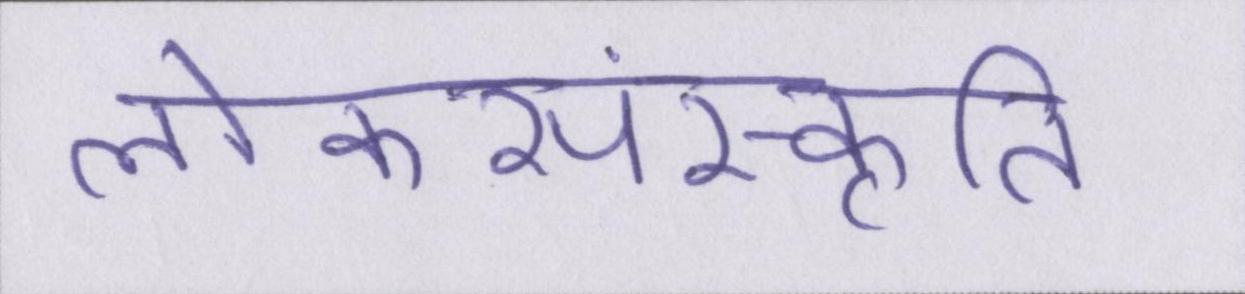 लोकसंस्कृति